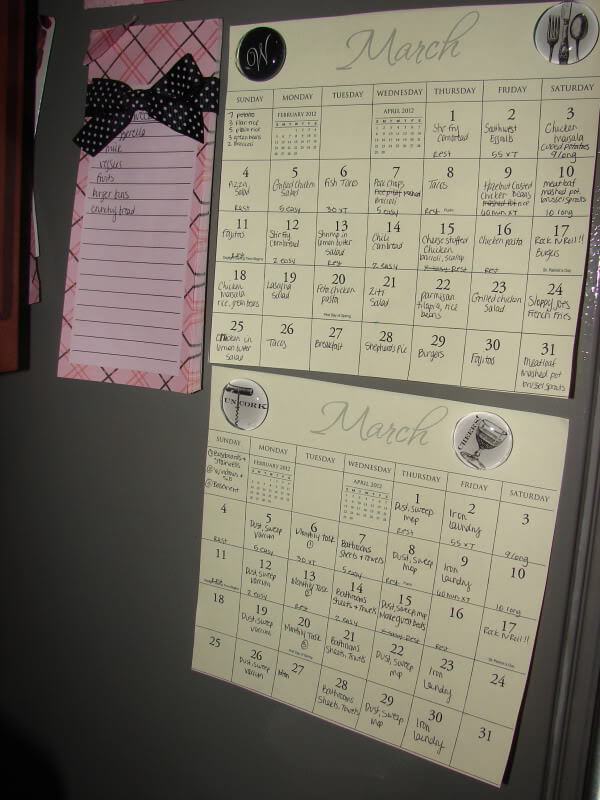 fruits
burger buns
crunchy bread
W
March
SUNDAY MONDAY TUESDAY WEDNESDAY THURSDAY FRIDAY SATURDAY
FEBRUARY 2012
APRIL 2012
1
Stir fry
Cornbread
Rest
2
Southwest
Eggrolls
55 XT
3
Chicken
masala
potatoes
9 long
4
Pizza
Salad
Rest
5
Grilled Chicken
Salad
5 easy
6
Fish Tacos
30 XT
7
Pork chops
broccoli
5 easy
8
Tacos
Rest
9
Hazelnut Crusted
Chicken Beans
rice
40 min XT
10
meatloaf
mashed pot
brussel sprouts
10 long
11
Fajitas
12
Stir Fry
Cornbread
2 easy
13
Shrimp in
lemon butter
salad
Rest
14
Chili
Cornbread
2 easy
15
Cheese stuffed
Chicken
Rest
16
Chicken pasta
Rest
17
Rock n Roll!!
Burgers
St. Patrick's Day
18
Chicken
masala
rice, potatoes
19
Lasagna
Salad
20
Pesto chicken
pasta
First Day of Spring
21
Ziti
Salad
22
parmesan
tilapia, rice
beans
23
Grilled chicken
Salad
24
Sloppy Joes
French Fries
25
Chicken in
lemon butter
salad
26
Tacos
27
Breakfast
28
Shepherds Pie
29
Burgers
30
Fajitas
31
Meatloaf
Mashed pot
brussel sprouts
UNCORK
March
CHEERS
SUNDAY MONDAY TUESDAY WEDNESDAY THURSDAY FRIDAY SATURDAY
① Baseboards +
Stairwells
② Windows +
③ Basement
FEBRUARY 2012
APRIL 2012
1
Dust, sweep
mop
Rest
2
Iron
laundry
55 XT
3
9 long
4
Rest
5
Dust, sweep
vacuum
5 easy
6
Monthly Task
①
30 XT
7
Bathrooms
Sheets + Towels
5 easy
8
Dust, sweep
mop
Rest
9
Iron
laundry
40 min XT
10
10 long
11
12
Dust, sweep
vacuum
2 easy
13
Monthly Task
②
Rest
14
Bathrooms
Sheets + Towels
2 easy
15
Dust, sweep mop
Make guest beds
Rest
16
Rest
17
Rock n Roll!!
St. Patrick's Day
18
19
Dust, sweep
vacuum
20
Monthly Task
③
First Day of Spring
21
Bathrooms
Sheets, Towels
22
Dust, sweep
mop
23
Iron
Laundry
24
25
26
Dust, sweep
vacuum
27
28
Bathrooms
Sheets, Towels
29
Dust, sweep
mop
30
Iron
laundry
31